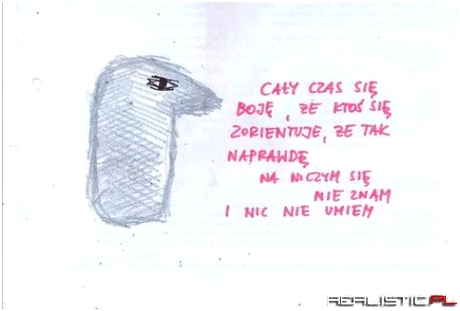 CAŁY CZAS SIĘ
BOJĘ, ŻE KTOŚ SIĘ
ZORIENTUJE, ŻE TAK
NAPRAWDĘ
NA NICZYM SIĘ
NIE ZNAM
I NIC NIE UMIEM
REALISTIC.PL